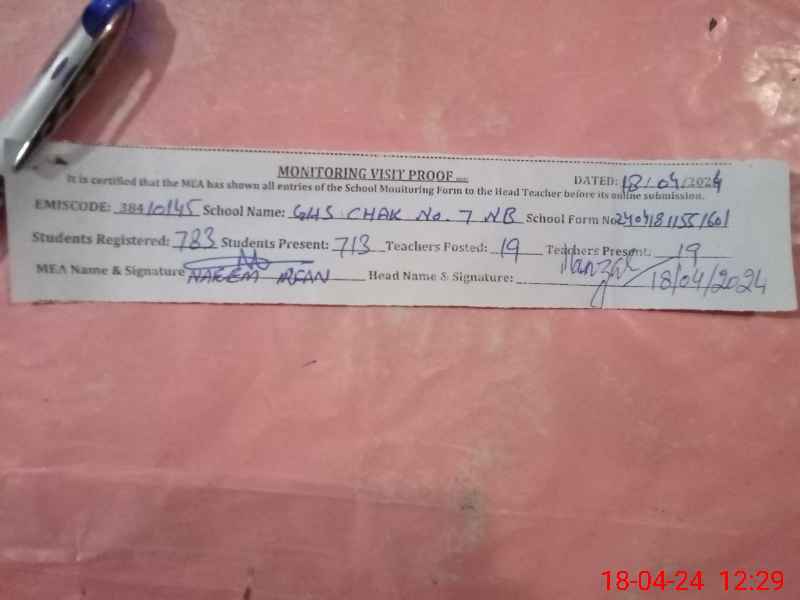 MONITORING VISIT PROOF
DATED: 18/04/2024
It is certified that the MEA has shown all entries of the School Monitoring Form to the Head Teacher before its online submission.
EMISCODE: 38410145 School Name: GHS CHAK No. 7 NB School Form No 24041811551601
Students Registered: 783 Students Present: 713 Teachers Posted: 19 Teachers Present: 19
MEA Name & Signature NAEEM IRFAN Head Name & Signature: 18/04/2024
18-04-24 12:29